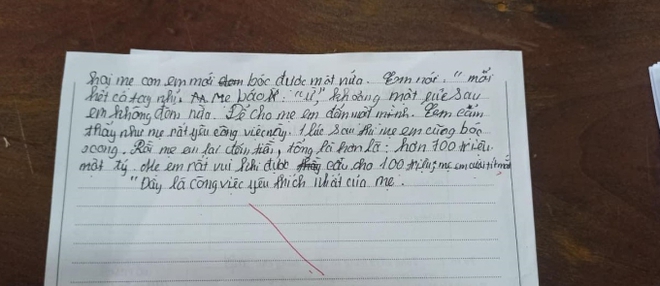 hai mẹ con em mới bóc được một nửa. Em nói: "mỏi
hết cả tay nhỉ. Mẹ bảo: "Ừ", khoảng một lúc sau
em không đếm nữa. Để cho mẹ em đếm một mình. Em cảm
thấy như mẹ rất yêu công việc này. 1 lúc sau thì mẹ em cũng bóc
xong. Rồi mẹ em lại đếm tiền, tổng là hơn là: hơn 100 triệu
một tý. Mẹ em rất vui khi được cầu cho 100 triệu, mẹ em cười tít mắt
"Đây là công việc yêu thích nhất của mẹ.